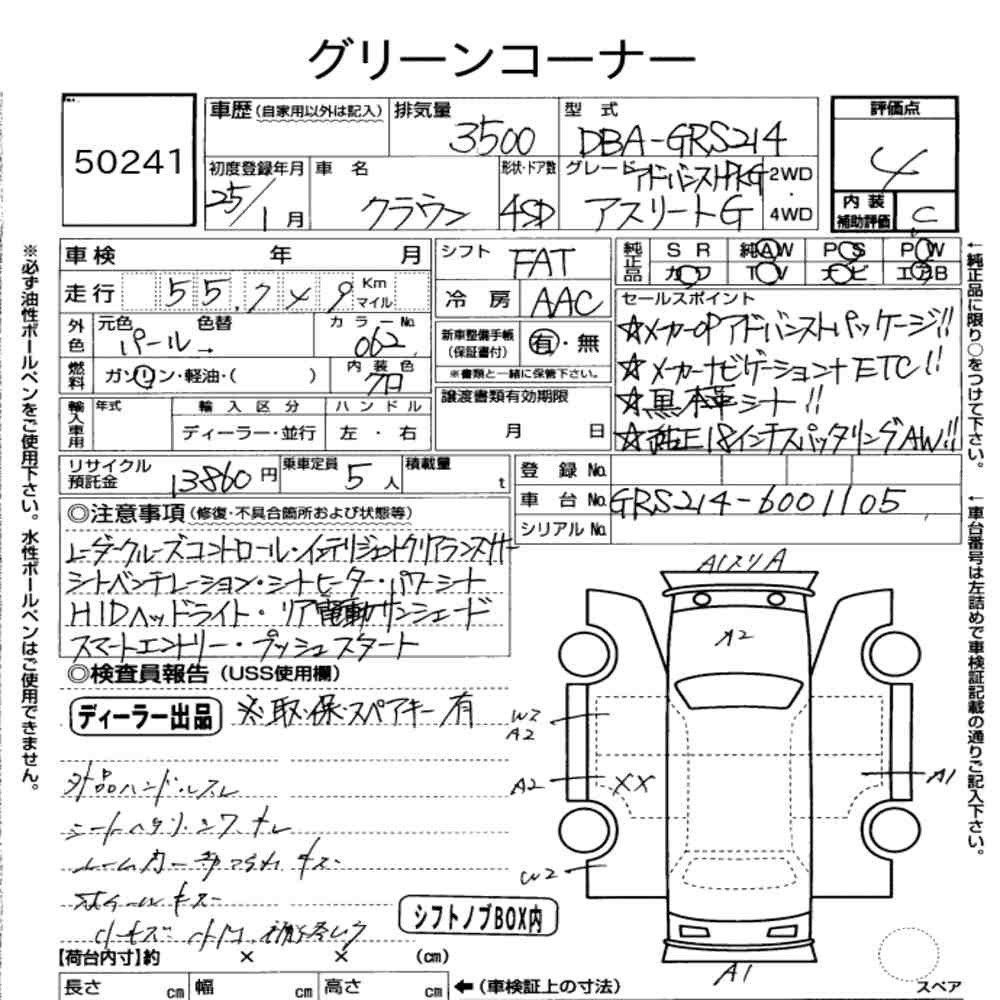 グリーンコーナー
50241
車歴(自家用以外は記入)
排気量
3500
型 式
DBA-GRS214
評価点
4
内装補助評価
C
初度登録年月
25/1月
車 名
クラウン
形状・ドア数
4SD
グレード
アドバンストPKG
アスリートG
2WD
・
4WD
※必ず油性ボールペンをご使用下さい。水性ボールペンはご使用できません。
車検 年 月
走行 55,749 Km マイル
外色 元色 色替
パール→
カラーNo.
062
燃料 ガソリン・軽油・( )
内装色
クロ
輸入車用 年式 輸入区分 ハンドル
ディーラー・並行 左・右
シフト FAT
冷房 AAC
新車整備手帳(保証書付) 有・無
※書類と一緒に保管下さい。
譲渡書類有効期限
月 日
純正品 SR 純AW PS PW
カワ TV ナビ エアB
セールスポイント
☆メーカーOPアドバンストパッケージ!!
☆メーカーナビゲーション+ETC!!
☆黒本革シート!!
☆純正18インチスパッタリングAW!!
←純正品に限り○をつけて下さい。
リサイクル預託金 13860円
乗車定員 5人
積載量 t
登録No.
車台No. GRS214-6001105
シリアルNo.
←車台番号は左詰めで車検証記載の通りご記入下さい。
◎注意事項(修復・不具合箇所および状態等)
レーダークルーズコントロール・インテリジェントクリアランスソナー
シートベンチレーション・シートヒーター・パワーシート
HIDヘッドライト・リア電動サンシェード
スマートエントリー・プッシュスタート
◎検査員報告(USS使用欄)
ディーラー出品
※取・保・スペアキー有
外品ハンドルスレ
キズ
シフトノブBOX内
A1スリA
A2
W2
A2
A2
XX
A1
W2
A1
【荷台内寸】約 × × (cm)
長さ cm 幅 cm 高さ cm ←(車検証上の寸法)
スペア